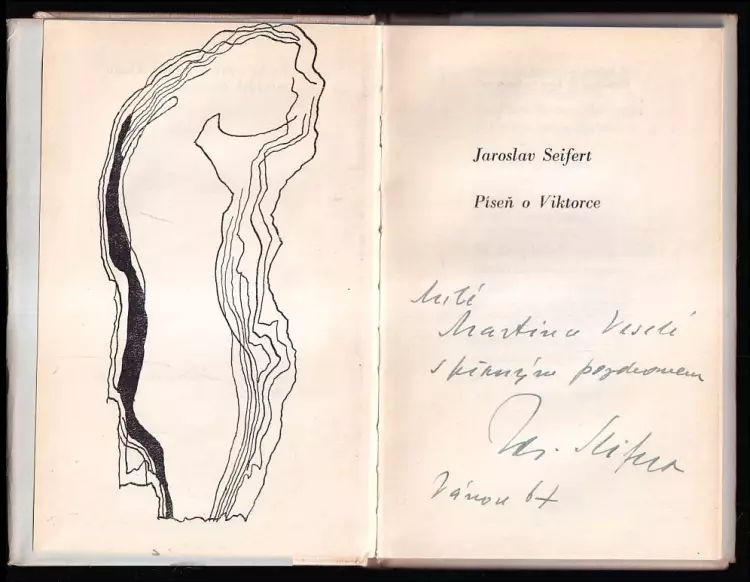 Jaroslav Seifert
Píseň o Viktorce
Milé
Martině Veselé
s pěkným pozdravem
Jar. Seifert
Vánoce 67